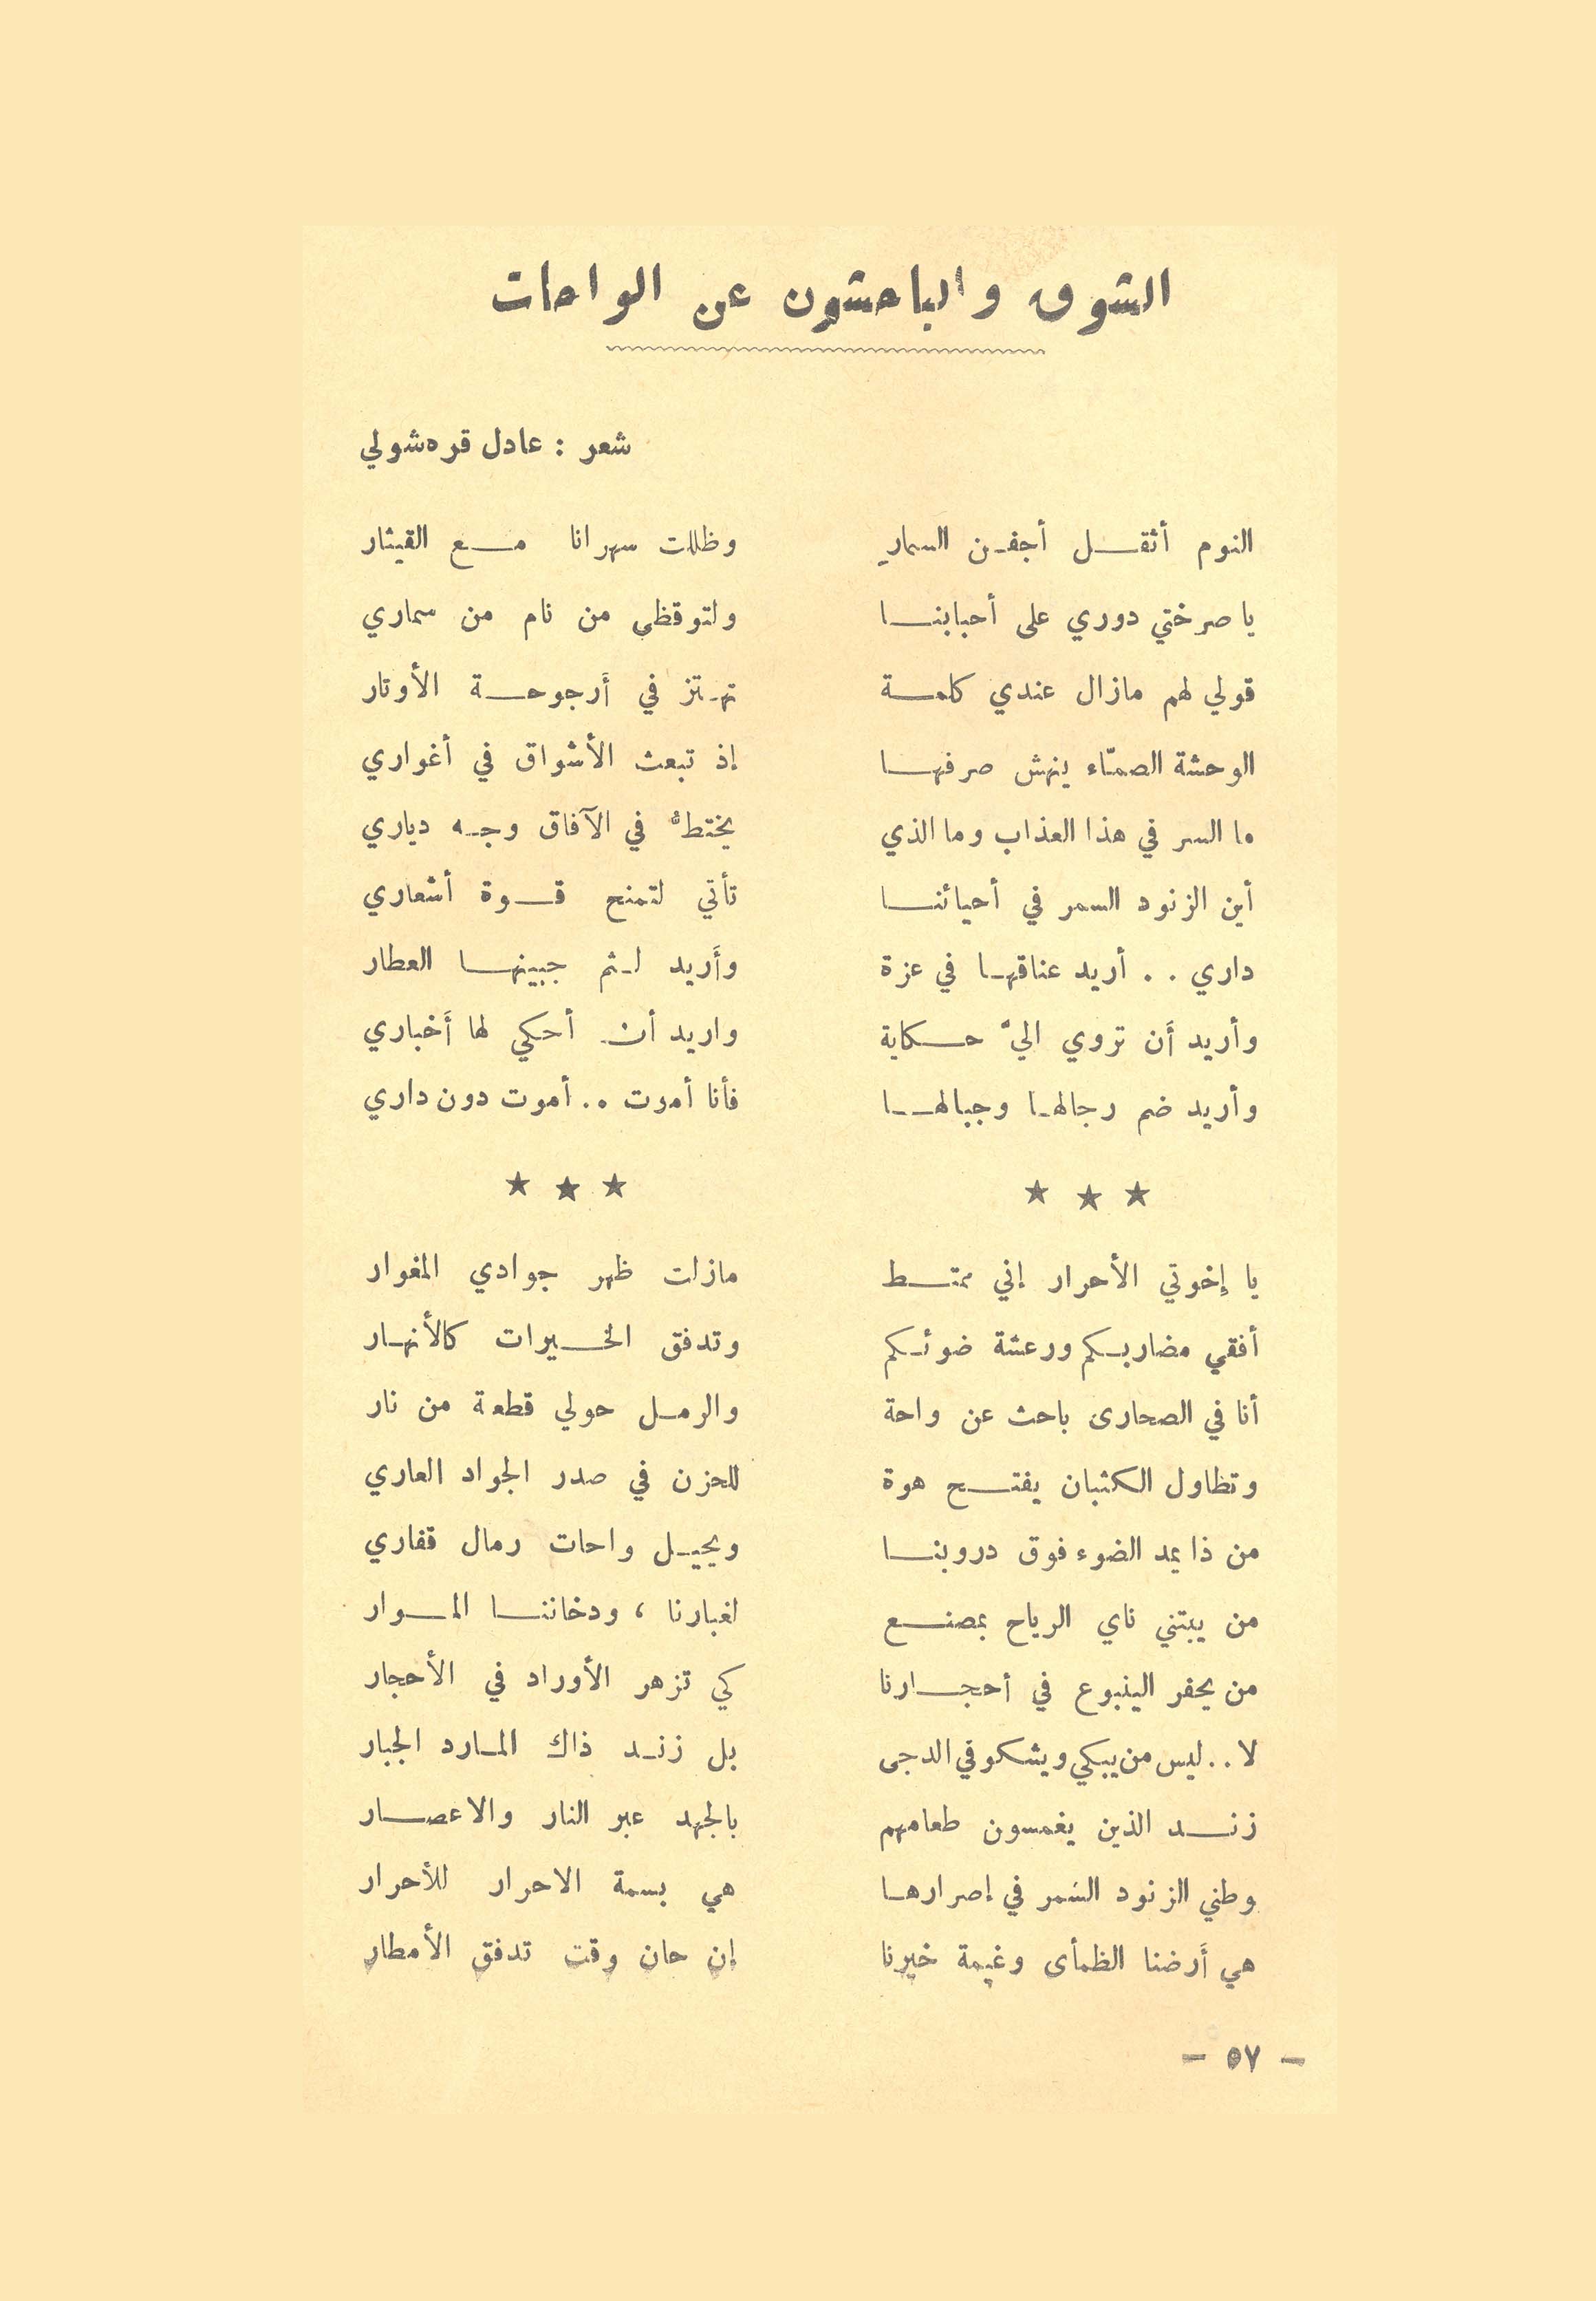 الشوق والباحثون عن الواحات
شعر : عادل قره شولي
النوم أثقل أجفن السمار وظللت سهرانا مع القيثار
يا صرختي دوري على أحبابنا ولتوقظي من نام من سماري
قولي لهم مازال عندي كلمة تهتز في أرجوحة الأوتار
الوحشة الصمّاء ينهش صرفها إذ تبعث الأشواق في أغواري
ما السر في هذا العذاب وما الذي يختطُّ في الآفاق وجه دياري
أين الزنود السمر في أحيائنا تأتي لتمنح قوة أشعاري
داري . . أريد عناقها في عزة وأريد لثم جبينها العطار
وأريد أن تروي اليّ حكاية واريد أن أحكي لها أخباري
وأريد ضم رجالها وجبالها فأنا أموت .. أموت دون داري
★ ★ ★ ★ ★ ★
يا إخوتي الأحرار إني ممتط مازلت ظهر جوادي المغوار
أفقي مضاربكم ورعشة ضوئكم وتدفق الخيرات كالأنهار
أنا في الصحارى باحث عن واحة والرمل حولي قطعة من نار
وتطاول الكثبان يفتح هوة للحزن في صدر الجواد العاري
من ذا يمد الضوء فوق دروبنا ويحيل واحات رمال قفاري
من يبتني ناي الرياح بمصنع لغبارنا ، ودخاننا الموار
من يحفر الينبوع في أحجارنا كي تزهر الأوراد في الأحجار
لا . . ليس من يبكي ويشكو في الدجى بل زند ذاك المارد الجبار
زند الذين يغمسون طعامهم بالجهد عبر النار والاعصار
وطني الزنود السَمر في إصرارها هي بسمة الاحرار للأحرار
هي أرضنا الظمأى وغيمة خيرنا إن حان وقت تدفق الأمطار
– ٥٧ –